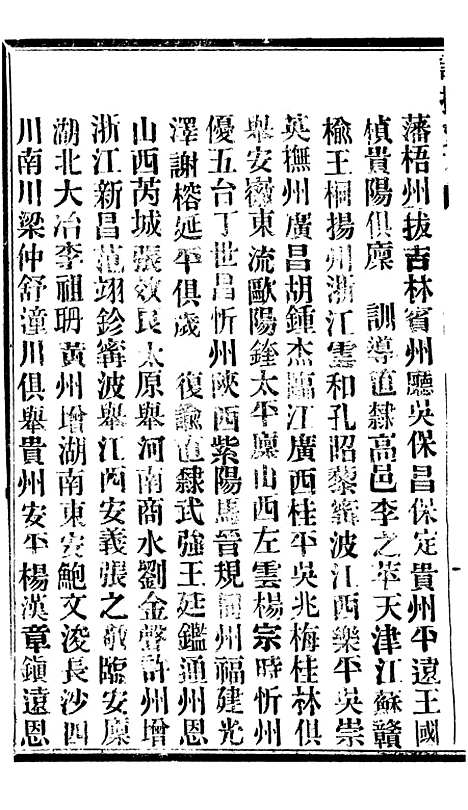 藩梧州拔吉林賓州廳吳保昌保定貴州平遠王國
楨貴陽俱廩　訓導直隸高邑李之萃天津江蘇贛
榆王桐揚州浙江雲和孔昭黎寗波江西樂平吳崇
英撫州廣昌胡鍾杰臨江廣西桂平吳兆梅桂林俱
舉安徽東流歐陽銓太平廩山西左雲楊宗時忻州
優五台丁世昌忻州陝西紫陽馬晉規同州福建光
澤謝榕延平俱歲　復諭直隸武強王延鑑通州恩
山西芮城張效良太原舉河南商水劉金聲許州增
浙江新昌范翊鉁寗波舉江西安義張之敬臨安廩
湖北大冶李祖珊黃州增湖南東安鮑文浚長沙四
川南川梁仲舒潼川俱舉貴州安平楊漢章鎮遠恩